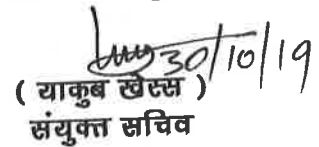 30/10/19
( याकुब खेस्स )
संयुक्त सचिव